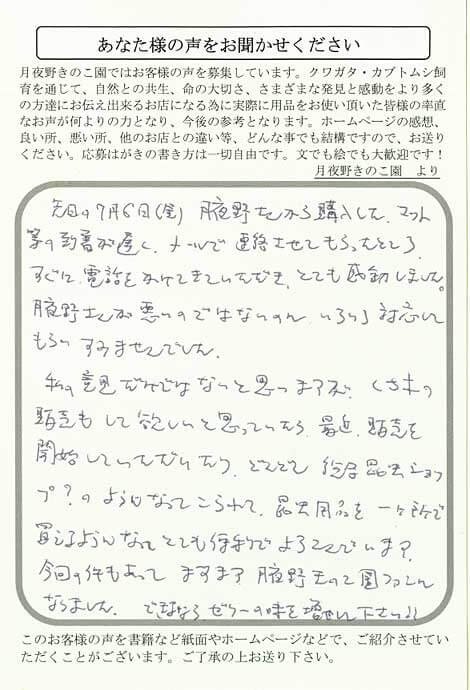 あなた様の声をお聞かせください
月夜野きのこ園ではお客様の声を募集しています。クワガタ・カブトムシ飼
育を通じて、自然との共生、命の大切さ、さまざまな発見と感動をより多く
の方達にお伝え出来るお店になる為に実際に用品をお使い頂いた皆様の率直
なお声が何よりの力となり、今後の参考となります。ホームページの感想、
良い所、悪い所、他のお店との違い等、どんな事でも結構ですので、お送り
ください。応募はがきの書き方は一切自由です。文でも絵でも大歓迎です！
月夜野きのこ園　より
先日の7月6日(金) 月夜野さんから購入した、マット
等の到着が遅く、メールで連絡させてもらったところ、
すぐに電話をかけてきていただき、とても感動しました。
月夜野さんが悪いのではないのに、いろいろ対応して
もらいすみませんでした。
私の意見だけではないと思いますが、くち木の
販売もして欲しいと思っていたら、最近、販売を
開始していただいたり、どんどん総合昆虫ショッ
プ？のようになってこられて、昆虫用品を一ヶ所で
買えるようになってとても便利でよろこんでいます。
今回の件もあって ますます月夜野きのこ園ファンに
なりました。 できるなら、ゼリーの味を増やして下さい!!
このお客様の声を書籍など紙面やホームページなどで、ご紹介させてい
ただくことがございます。ご了承の上お送り下さい。